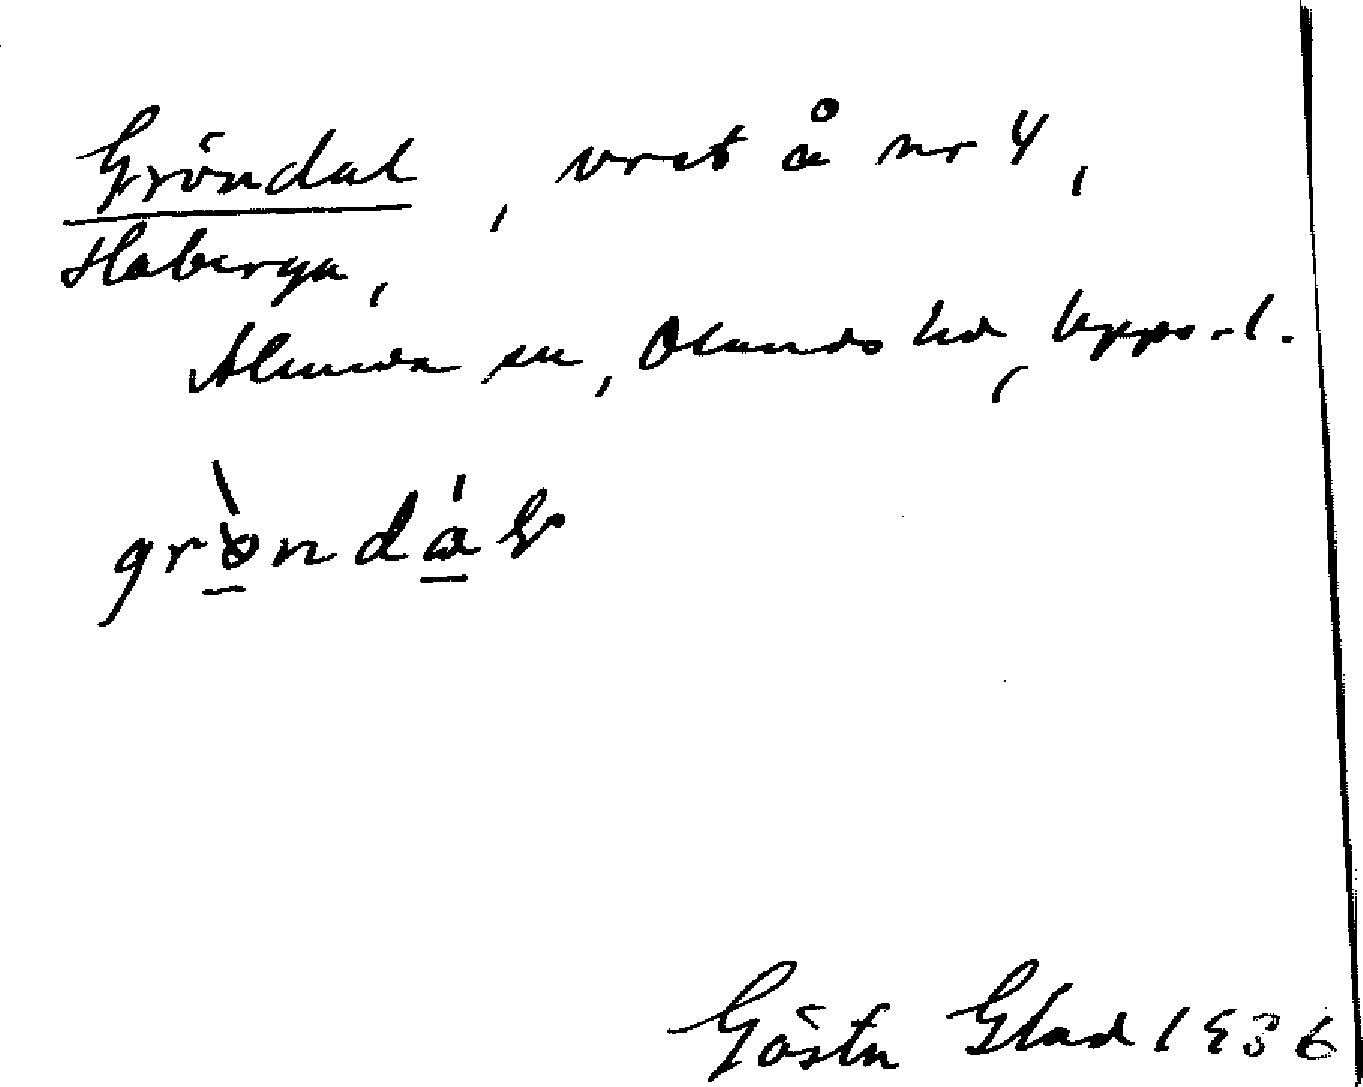 Gröndal, vret å nr 4,
Haberga,
Almunda sn, Olands hd, Upps. l.
gröndal
Gösta Glad 1936